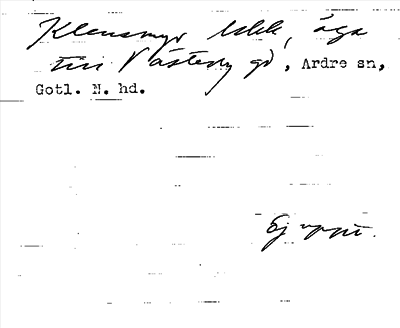 Klensmyr tebk, äga
till Västerby gd, Ardre sn,
Gotl. N. hd.
Ej uppt.